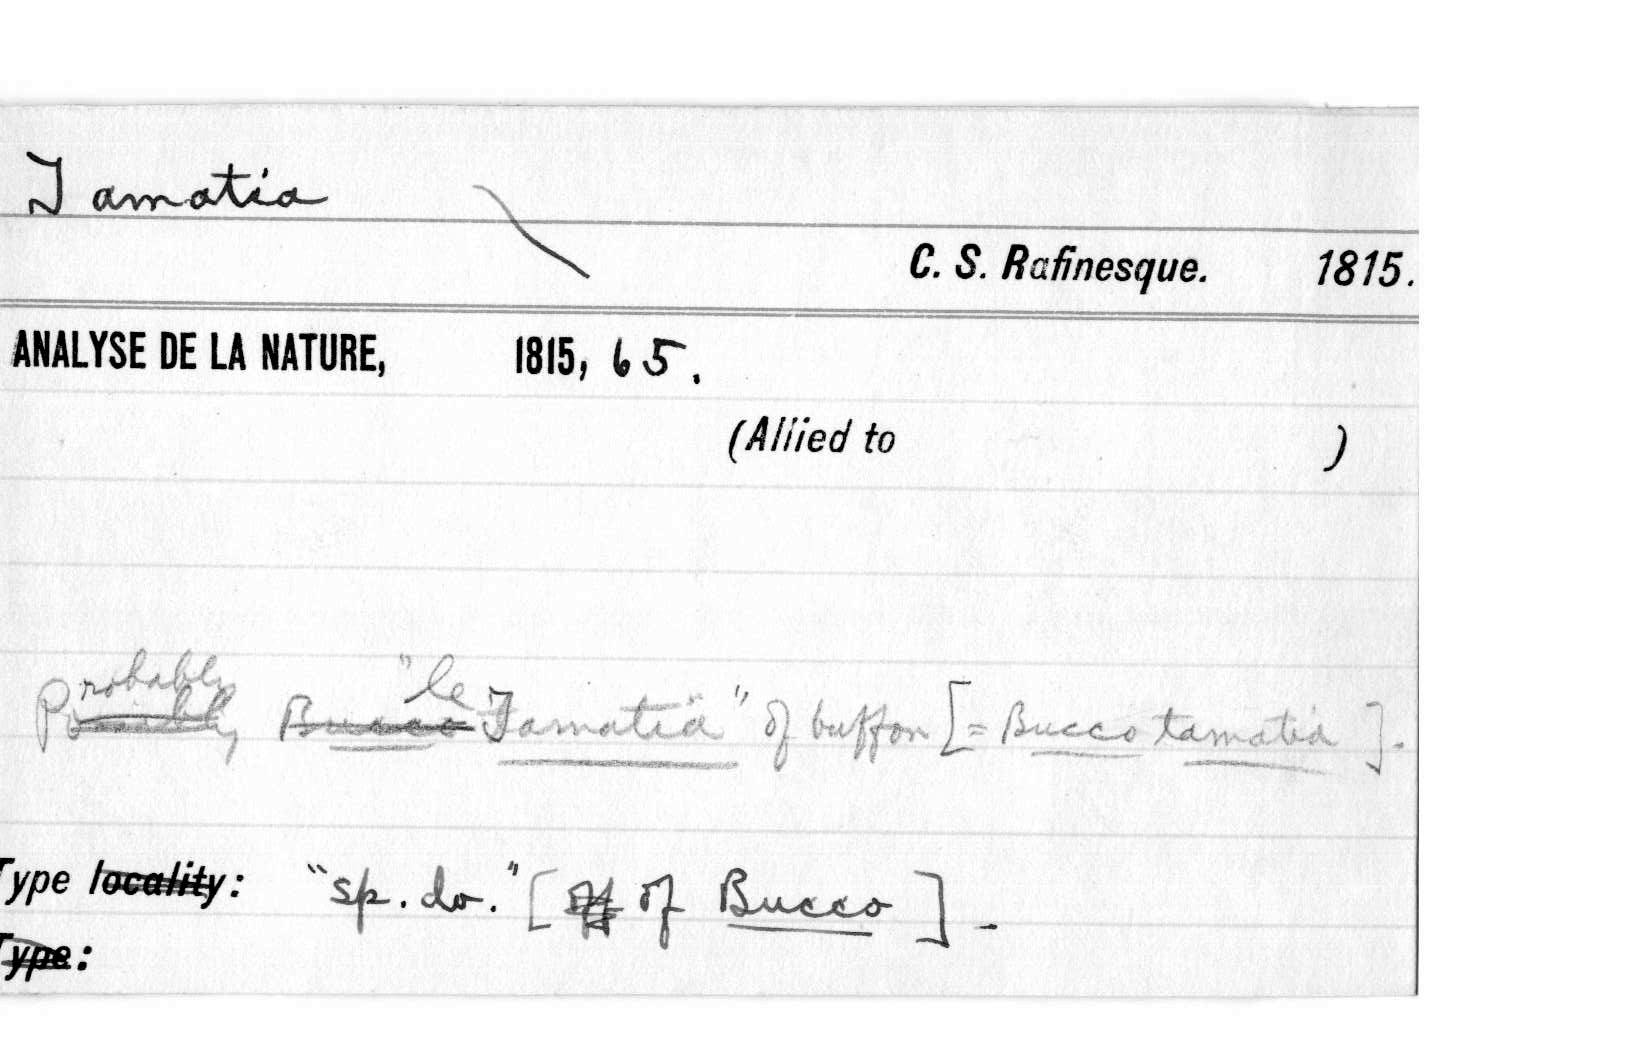 Tamatia
C. S. Rafinesque. 1815.
ANALYSE DE LA NATURE, 1815, 65.
(Allied to )
Probably "le
Possibly Bucco Tamatia" of buffon [= Bucco tamatia].
Type locality: "sp. do." [of of Bucco].
Type: